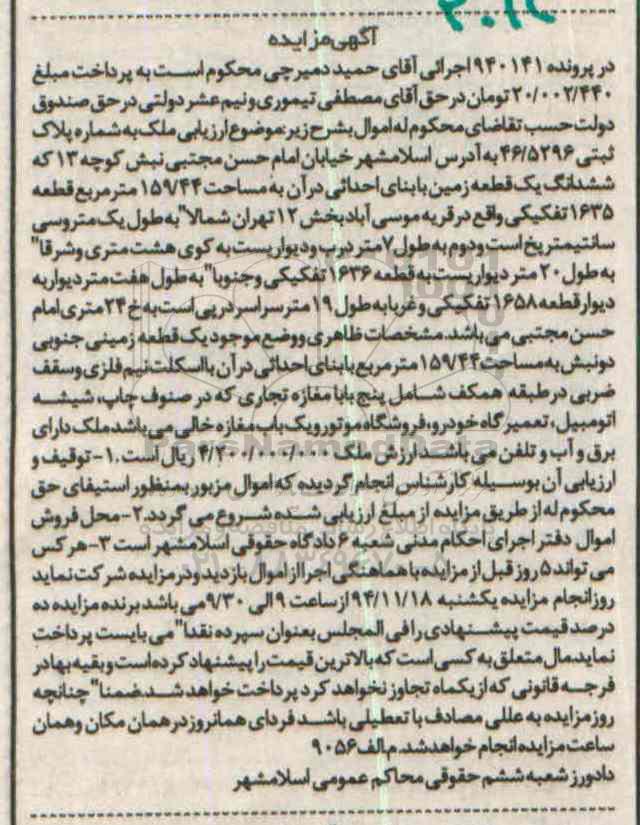 آگهی مزایده
در پرونده ۹۴۰۱۴۱ اجرائی آقای حمید دمیرچی محکوم است به پرداخت مبلغ
۲۰/۰۰۲/۴۴۰ تومان در حق آقای مصطفی تیموری و نیم عشر دولتی در حق صندوق
دولت حسب تقاضای محکوم له اموال بشرح زیر: موضوع ارزیابی ملک به شماره پلاک
ثبتی ۴۶/۵۲۹۶ به آدرس اسلامشهر خیابان امام حسن مجتبی نبش کوچه ۱۳ که
ششدانگ یک قطعه زمین با بنای احداثی در آن به مساحت ۱۵۹/۴۴ متر مربع قطعه
۱۶۳۵ تفکیکی واقع در قریه موسی آباد بخش ۱۲ تهران شمالا" به طول یک متر و سی
سانتیمتر پخ است و دوم به طول ۷ متر درب و دیواریست به کوی هشت متری و شرقا"
به طول ۲۰ متر دیواریست به قطعه ۱۶۳۶ تفکیکی و جنوبا" به طول هفت متر دیوار به
دیوار قطعه ۱۶۵۸ تفکیکی و غربا به طول ۱۹ متر سراسر در پی است به خ ۲۴ متری امام
حسن مجتبی می باشد. مشخصات ظاهری و وضع موجود یک قطعه زمینی جنوبی
دونبش به مساحت ۱۵۹/۴۴ متر مربع با بنای احداثی در آن با اسکلت نیم فلزی و سقف
ضربی در طبقه همکف شامل پنج باب مغازه تجاری که در صنوف چاپ، شیشه
اتومبیل، تعمیر گاه خودرو، فروشگاه موتور و یک باب مغازه خالی می باشد ملک دارای
برق و آب و تلفن می باشد ارزش ملک ۴/۲۰۰/۰۰۰/۰۰۰ ریال است .۱- توقیف و
ارزیابی آن بوسیله کارشناس انجام گردیده که اموال مزبور بمنظور استیفای حق
محکوم له از طریق مزایده از مبلغ ارزیابی شده شروع می گردد.۲- محل فروش
اموال دفتر اجرای احکام مدنی شعبه ۶ دادگاه حقوقی اسلامشهر است ۳- هر کس
می تواند ۵ روز قبل از مزایده با هماهنگی اجرا از اموال بازدید و در مزایده شرکت نماید
روز انجام مزایده یکشنبه ۹۴/۱۱/۱۸ از ساعت ۹ الی ۹/۳۰ می باشد برنده مزایده ده
درصد قیمت پیشنهادی را فی المجلس بعنوان سپرده نقدا" می بایست پرداخت
نماید.مال متعلق به کسی است که بالاترین قیمت را پیشنهاد کرده است و بقیه بها در
فرجه قانونی که از یکماه تجاوز نخواهد کرد پرداخت خواهد شد.ضمنا" چنانچه
روز مزایده به عللی مصادف با تعطیلی باشد فردای همانروز در همان مکان و همان
ساعت مزایده انجام خواهد شد. م.الف ۹۰۵۶
دادورز شعبه ششم حقوقی محاکم عمومی اسلامشهر